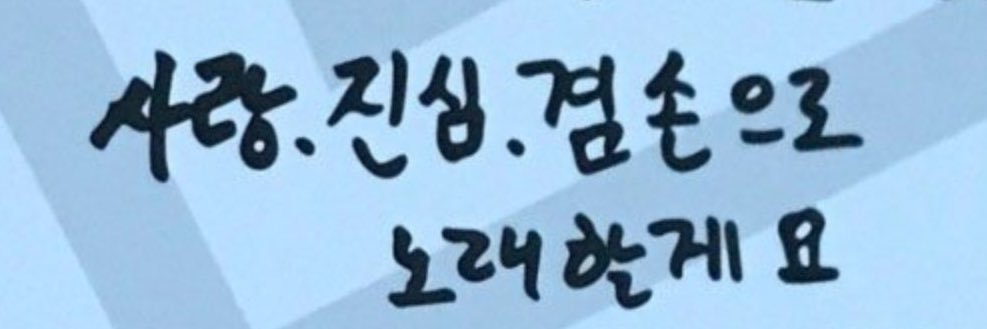 사랑.진심.겸손으로
노래할게요